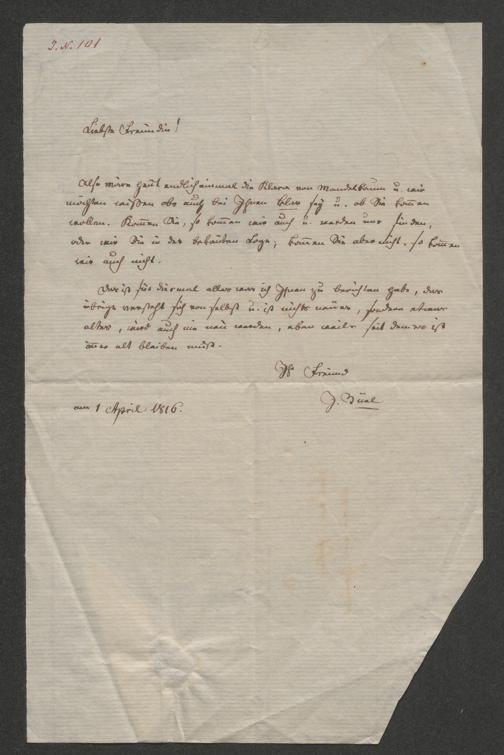 J. N. 101
Liebste Freundin!
Also wäre heut endlich einmal die Klara von Mandelbaum u. wir
möchten wissen ob auch bei Ihnen klar sey u. ob Sie kommen
wollen. Kommen Sie, so kommen wir auch u. werden uns finden,
oder wir Sie in der bekannten Loge; kommen Sie aber nicht, so kommen
wir auch nicht.
Das ist für diesmal alles was ich Ihnen zu berichten habe, das
übrige versteht sich von selbst u. ist nichts neues, sondern etwas
altes, wird auch nie neu werden, eben weil es seit dem es ist
immer alt bleiben muß.
Ihr Freund
J. Büel
am 1 April 1816.